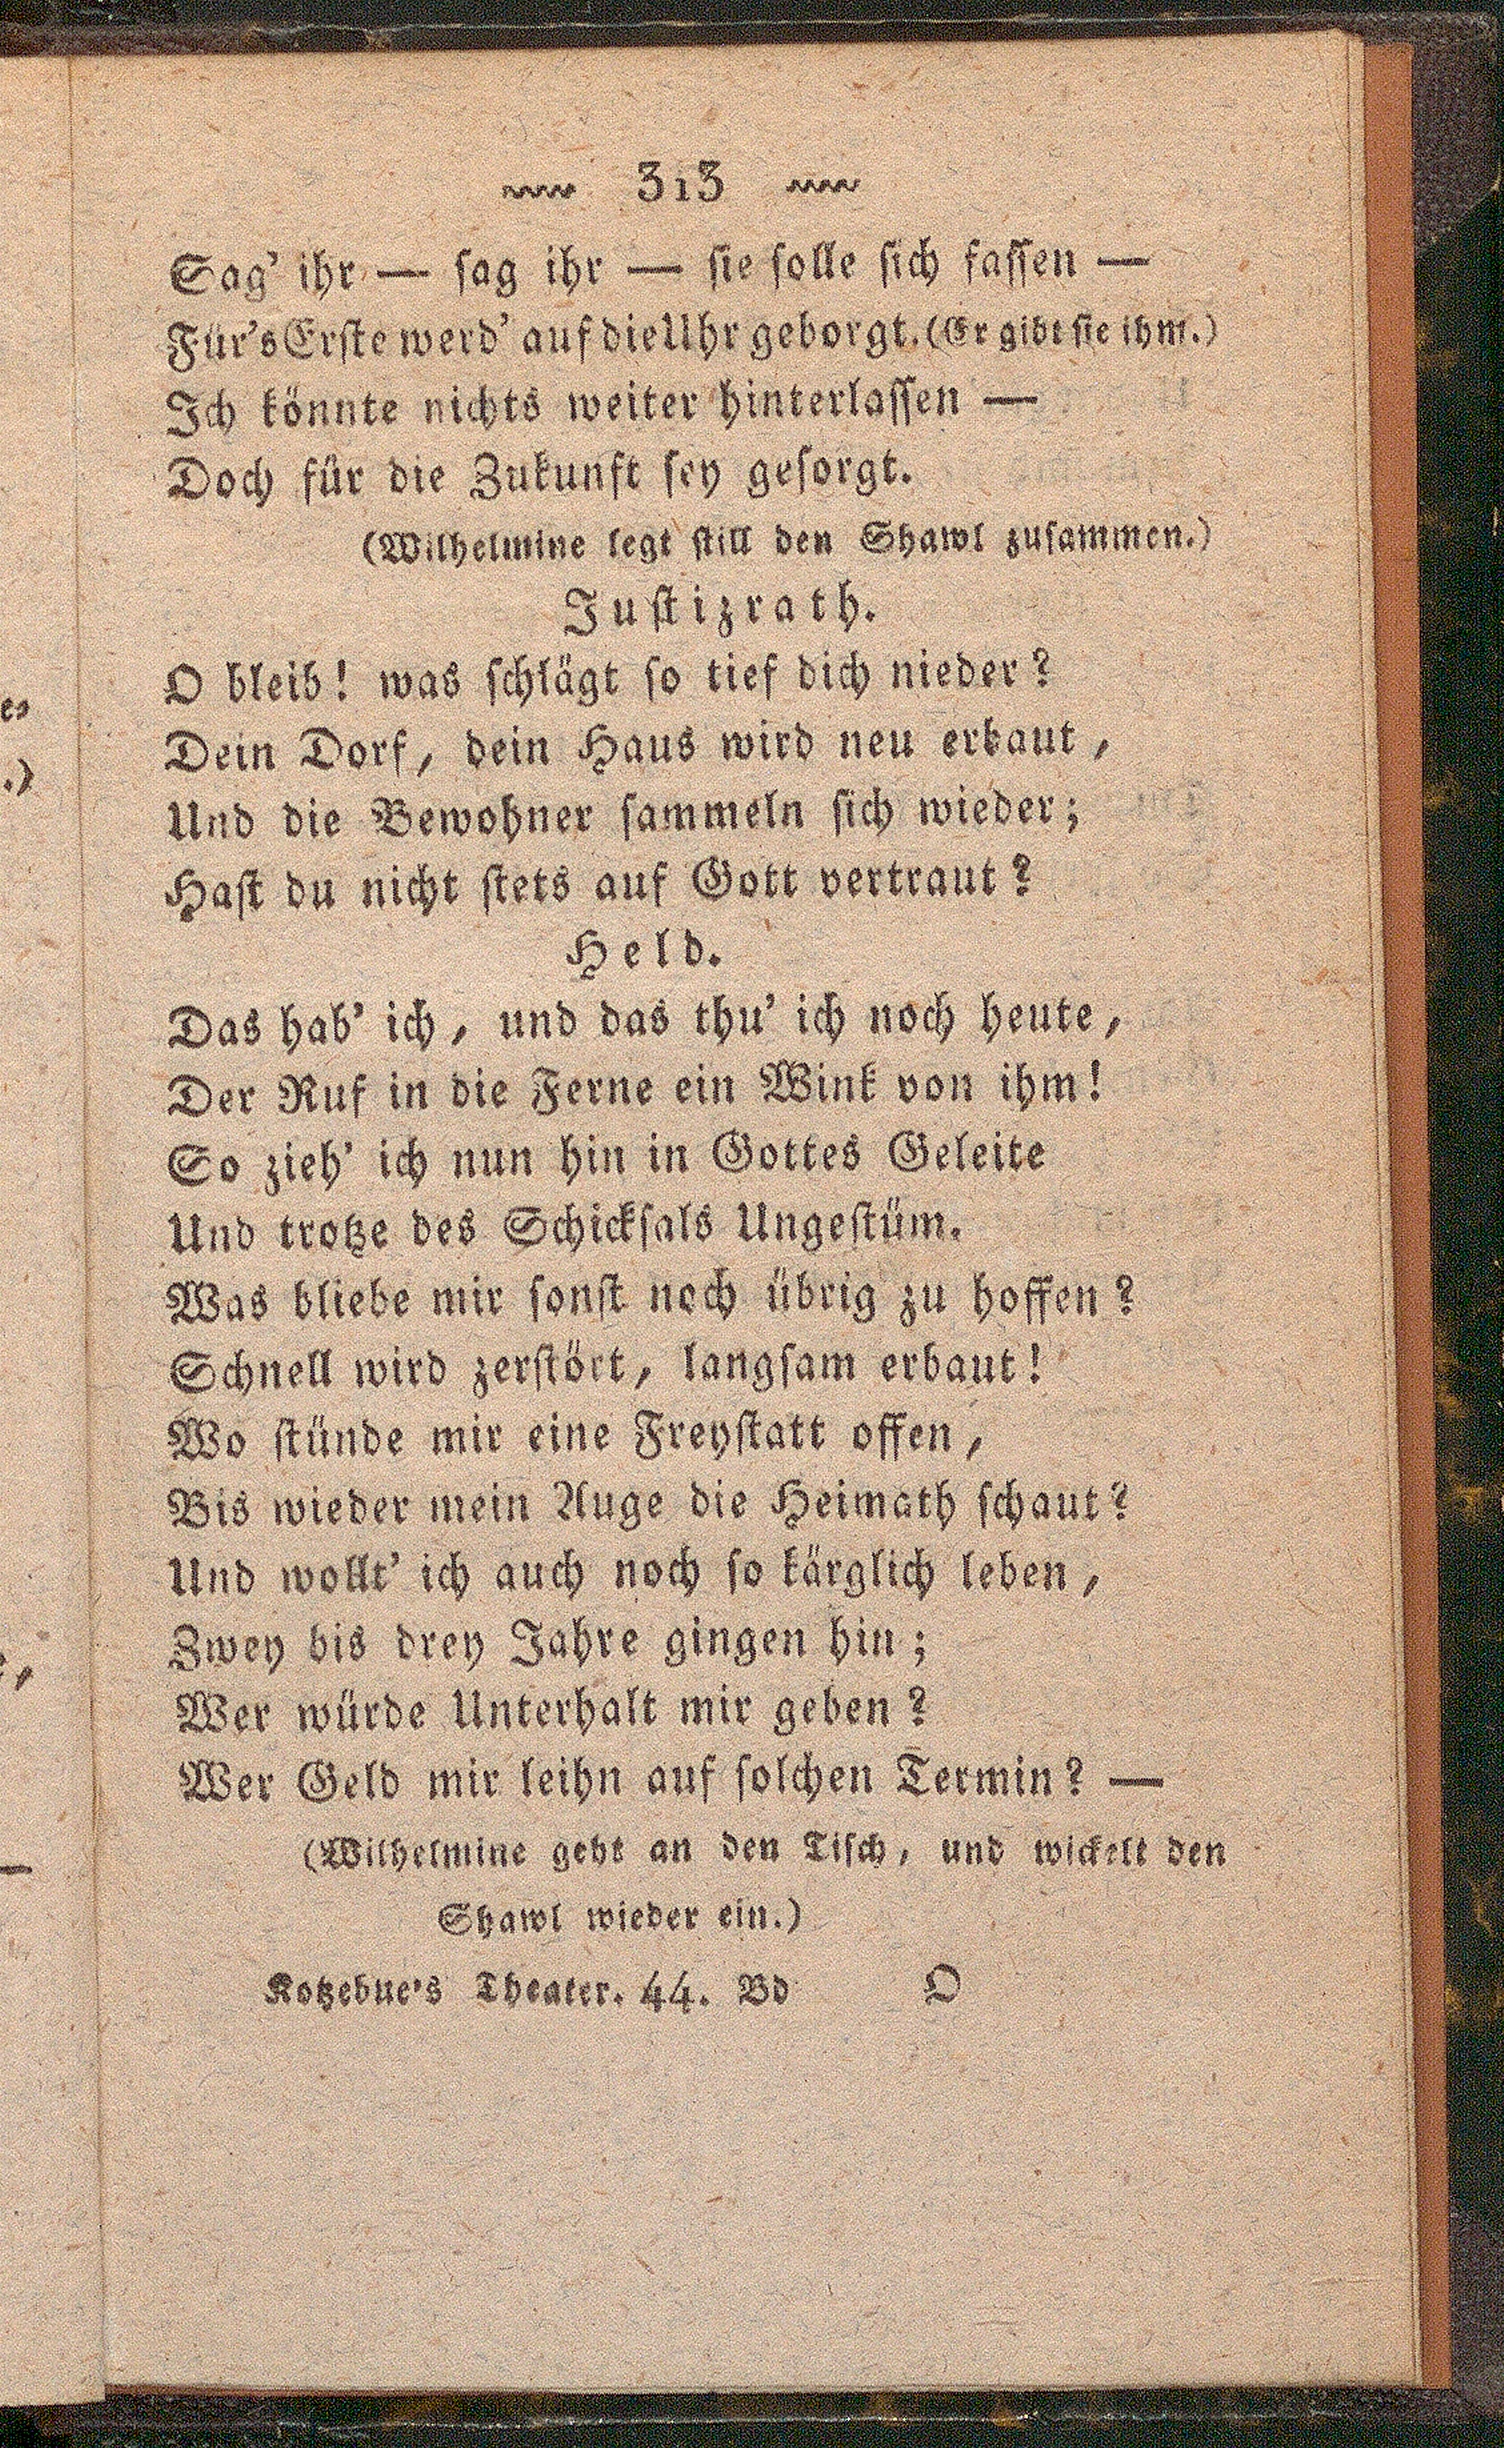 313
Sag' ihr — sag ihr — sie solle sich fassen —
Für's Erste werd' auf die Uhr geborgt. (Er gibt sie ihm.)
Ich könnte nichts weiter hinterlassen —
Doch für die Zukunft sey gesorgt.
(Wilhelmine legt still den Shawl zusammen.)
Justizrath.
O bleib! was schlägt so tief dich nieder?
Dein Dorf, dein Haus wird neu erbaut,
Und die Bewohner sammeln sich wieder;
Hast du nicht stets auf Gott vertraut?
Held.
Das hab' ich, und das thu' ich noch heute,
Der Ruf in die Ferne ein Wink von ihm!
So zieh' ich nun hin in Gottes Geleite
Und trotze des Schicksals Ungestüm.
Was bliebe mir sonst noch übrig zu hoffen?
Schnell wird zerstört, langsam erbaut!
Wo stünde mir eine Freystatt offen,
Bis wieder mein Auge die Heimath schaut?
Und wollt' ich auch noch so kärglich leben,
Zwey bis drey Jahre gingen hin;
Wer würde Unterhalt mir geben?
Wer Geld mir leihn auf solchen Termin? —
(Wilhelmine geht an den Tisch, und wickelt den
Shawl wieder ein.)
Kotzebue's Theater. 44. Bd O